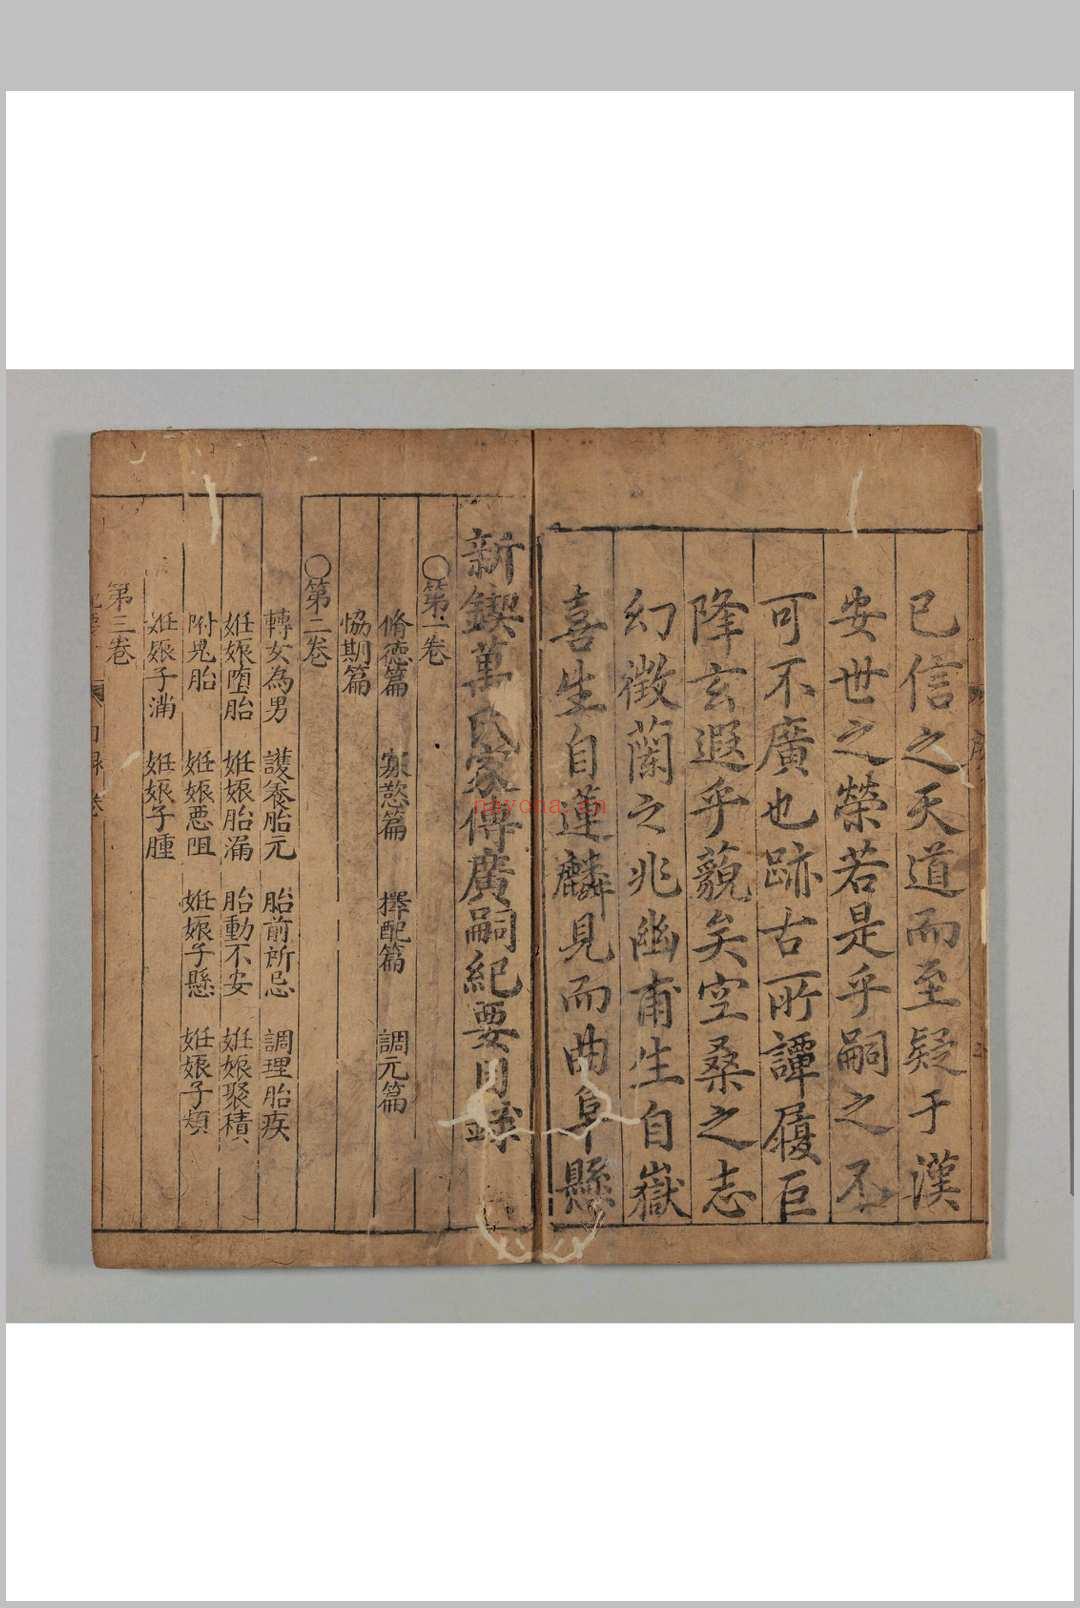 已信之天道而至疑于漢
安世之榮若是乎嗣之不
可不廣也跡古所譚履巨
降玄遐乎藐矣空桑之志
幻徴蘭之兆幽甫生自嶽
喜生自蓮麟見而曲阜縣
新鍥萬氏家傳廣嗣紀要目錄
○第一卷
脩德篇 寡慾篇 擇配篇 調元篇
恊期篇
○第二卷
轉女為男 護養胎元 胎前所忌 調理胎疾
妊娠墮胎 妊娠胎漏 胎動不安 妊娠聚積
附鬼胎 妊娠悪阻 妊娠子懸 妊娠子煩
妊娠子滿 妊娠子腫
第三卷
nayona.cn